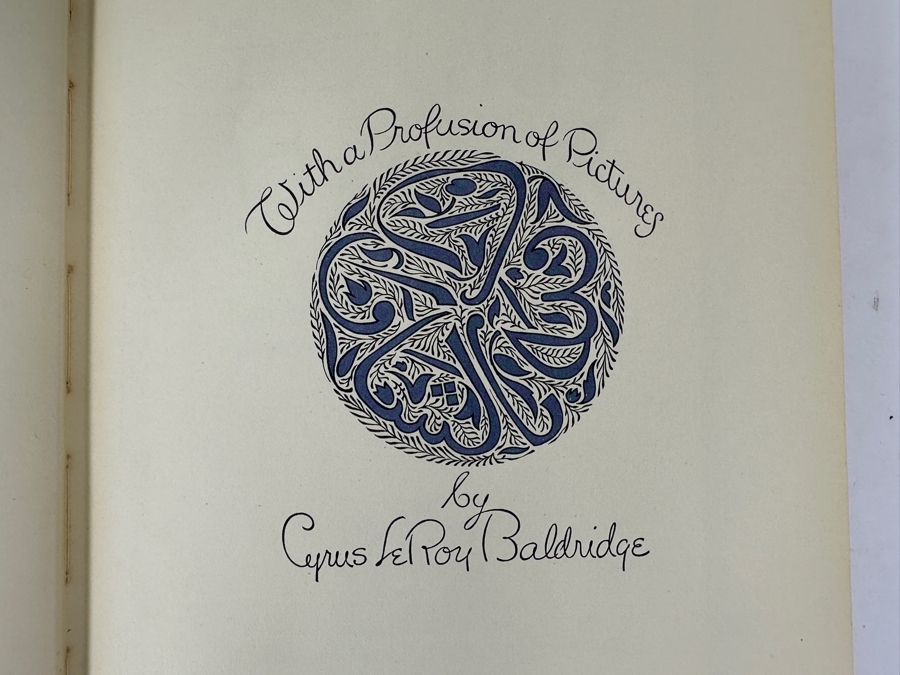 With a Profusion of Pictures
by
Cyrus LeRoy Baldridge